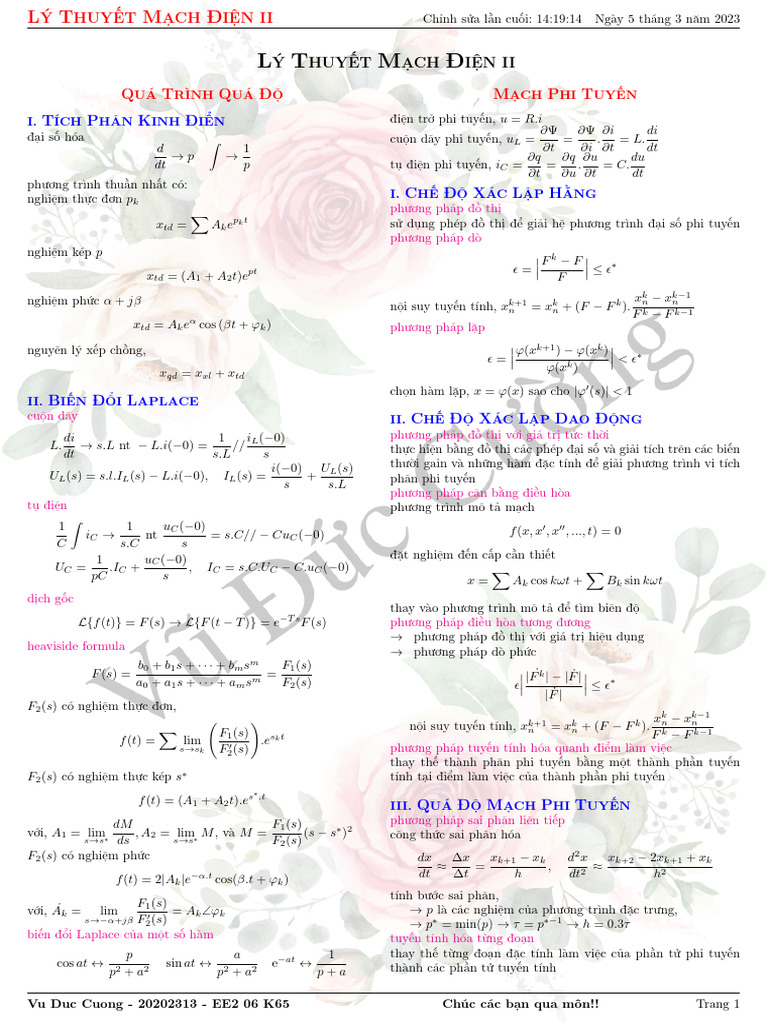 LÝ THUYẾT MẠCH ĐIỆN II
Chỉnh sửa lần cuối: 14:19:14 Ngày 5 tháng 3 năm 2023
LÝ THUYẾT MẠCH ĐIỆN II
QUÁ TRÌNH QUÁ ĐỘ
I. TÍCH PHÂN KINH ĐIỂN
đại số hóa
d/dt → p ∫ → 1/p
phương trình thuần nhất có:
nghiệm thực đơn p_k
x_{td} = ∑ A_k e^{p_k t}
nghiệm kép p
x_{td} = (A_1 + A_2 t)e^{pt}
nghiệm phức α + jβ
x_{td} = A_k e^α cos (βt + φ_k)
nguyên lý xếp chồng,
x_{qd} = x_{xl} + x_{td}
II. BIẾN ĐỔI LAPLACE
cuộn dây
L.di/dt → s.L nt − L.i(−0) = 1/s.L // i_L(−0)/s
U_L(s) = s.l.I_L(s) − L.i(−0), I_L(s) = i(−0)/s + U_L(s)/s.L
tụ điện
1/C ∫ i_C → 1/s.C nt u_C(−0)/s = s.C// − Cu_C(−0)
U_C = 1/pC .I_C + u_C(−0)/s, I_C = s.C.U_C − C.u_C(−0)
dịch gốc
ℒ{f(t)} = F(s) → ℒ{F(t − T)} = e^{−Ts}F(s)
heaviside formula
F(s) = (b_0 + b_1s + ··· + b_m s^m)/(a_0 + a_1s + ··· + a_m s^m) = F_1(s)/F_2(s)
F_2(s) có nghiệm thực đơn,
f(t) = ∑ lim_{s→s_k} (F_1(s)/F_2′(s)).e^{s_k t}
F_2(s) có nghiệm thực kép s*
f(t) = (A_1 + A_2t).e^{s*.t}
với, A_1 = lim_{s→s*} dM/ds, A_2 = lim_{s→s*} M, và M = F_1(s)/F_2(s) (s − s*)^2
F_2(s) có nghiệm phức
f(t) = 2|A_k|e^{−α.t} cos(β.t + φ_k)
với, Ȧ_k = lim_{s→−α+jβ} F_1(s)/F_2′(s) = A_k∠φ_k
biến đổi Laplace của một số hàm
cos at ↔ p/(p^2 + a^2) sin at ↔ a/(p^2 + a^2) e^{−at} ↔ 1/(p + a)
MẠCH PHI TUYẾN
điện trở phi tuyến, u = R.i
cuộn dây phi tuyến, u_L = ∂Ψ/∂t = ∂Ψ/∂i . ∂i/∂t = L. di/dt
tụ điện phi tuyến, i_C = ∂q/∂t = ∂q/∂u . ∂u/∂t = C. du/dt
I. CHẾ ĐỘ XÁC LẬP HẰNG
phương pháp đồ thị
sử dụng phép đồ thị để giải hệ phương trình đại số phi tuyến
phương pháp dò
ϵ = |(F^k − F)/F| ≤ ϵ*
nội suy tuyến tính, x_n^{k+1} = x_n^k + (F − F^k). (x_n^k − x_n^{k−1})/(F^k − F^{k−1})
phương pháp lặp
ϵ = |(φ(x^{k+1}) − φ(x^k))/φ(x^k)| < ϵ*
chọn hàm lặp, x = φ(x) sao cho |φ′(s)| < 1
II. CHẾ ĐỘ XÁC LẬP DAO ĐỘNG
phương pháp đồ thị với giá trị tức thời
thực hiện bằng đồ thị các phép đại số và giải tích trên các biến
thười gain và những hàm đặc tính để giải phương trình vi tích
phân phi tuyến
phương pháp cân bằng điều hòa
phương trình mô tả mạch
f(x, x′, x″, ..., t) = 0
đặt nghiệm đến cấp cần thiết
x = ∑ A_k cos kωt + ∑ B_k sin kωt
thay vào phương trình mô tả để tìm biên độ
phương pháp điều hòa tương đương
→ phương pháp đồ thị với giá trị hiệu dụng
→ phương pháp dò phức
ϵ|(|Ḟ^k| − |Ḟ|)/|Ḟ|| ≤ ϵ*
nội suy tuyến tính, x_n^{k+1} = x_n^k + (F − F^k). (x_n^k − x_n^{k−1})/(F^k − F^{k−1})
phương pháp tuyến tính hóa quanh điểm làm việc
thay thế thành phần phi tuyến bằng một thành phần tuyến
tính tại điểm làm việc của thành phần phi tuyến
III. QUÁ ĐỘ MẠCH PHI TUYẾN
phương pháp sai phân liên tiếp
công thức sai phân hóa
dx/dt ≈ Δx/Δt = (x_{k+1} − x_k)/h, d^2x/dt^2 ≈ (x_{k+2} − 2x_{k+1} + x_k)/h^2
tính bước sai phân,
→ p là các nghiệm của phương trình đặc trưng,
→ p* = min(p) → τ = p^{*−1} → h = 0.3τ
tuyến tính hóa từng đoạn
thay thế từng đoạn đặc tính làm việc của phần tử phi tuyến
thành các phần tử tuyến tính
Vũ Đức Cường
Vu Duc Cuong - 20202313 - EE2 06 K65
Chúc các bạn qua môn!!
Trang 1